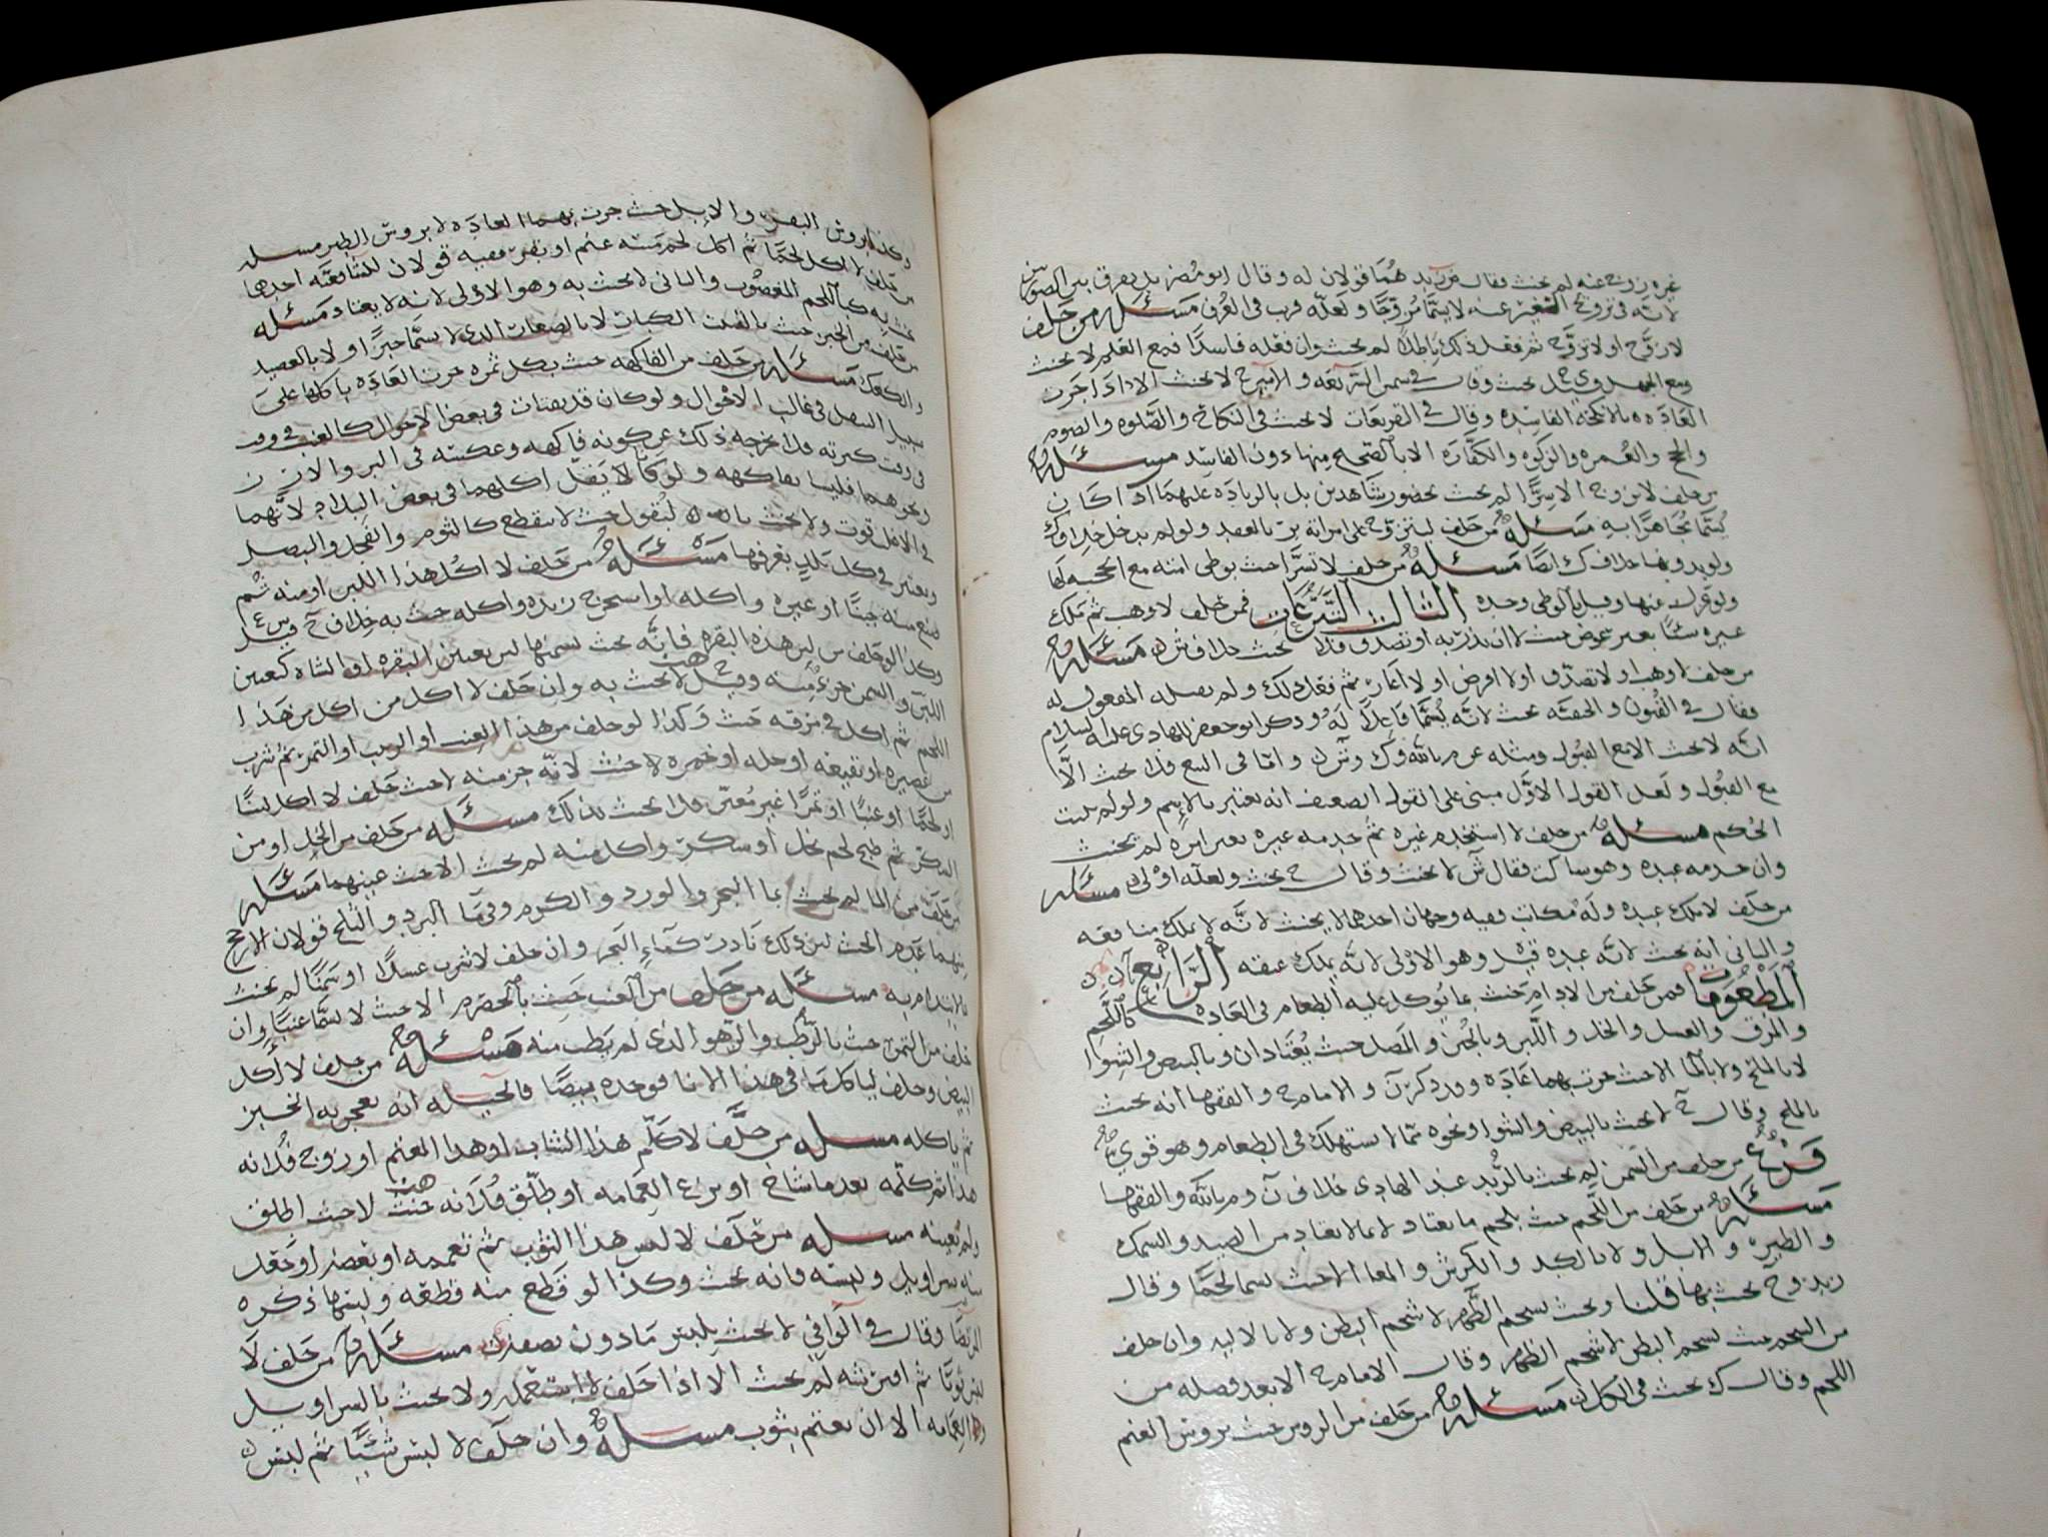 غيره زوج عنه لم يحنث فقال م بالله هما قولان له وقال ابو مضر بل يفرق بين الصورتين
لانه في تزويج الغير عنه لا يسمّا مزوّجًا ولعله قرب في العرف مسئله من حلف
لا زوّج او لا تزوّج ثم فعل ذلك باطلا لم يحنث وان فعله فاسدًا فمع العلم لا يحنث
ومع الجهل يحنث وقال في شمس الشريعه لا يحنث الا اذا جرت
العاده بالانكحة الفاسده وقال في التفريعات لا يحنث في النكاح والصلوه والصوم
والحج والعمره والزكوه والكفاره الا بالصحيح منها دون الفاسد مسئله
من حلف لا تزوج الا سرًّا لم يحنث بحضور شاهدين بل بالزياده عليهما اذا كان
يسمّا مجاهرًا به مسئله من حلف ليتزوج على امراته برّ بالعقد ولو لم يدخل خلاف ك
ولو بدونها خلاف ك ايضًا مسئله من حلف لا تسرّا حنث بوطى امته مع الحجبه لها
ولو عزل عنها وقيل بالوطى وحده الثالث التبرعات فمن حلف لا وهب ثم ملك
غيره شيئًا بغير عوض حنث لا ان نذر به او تصدق فلا يحنث خلاف ش مسئله
من حلف لا وهب او لا تصدّق او لا اقرض او لا اعار ثم فعل ذلك ولم يقبله المفعول له
فقال في الفنون والحقيقه يحنث لانه يسمّا فاعلًا له وذكر ابو جعفر للهادي عليه السلام
انه لا يحنث الا مع القبول ومثله عن م بالله وك وش واما في البيع فلا يحنث الّا
مع القبول ولعل القول الاوّل مبني على القول الضعيف انه يعتبر بالاسم ولو لم يثبت
الحكم مسئله من حلف لا استخدم غيره ثم خدمه غيره بغير امره لم يحنث
وان خدمه عبده وهو ساكت فقال ش لا يحنث وقال ح يحنث ولعله اولى مسئله
من حلف لا ملك عبده وله مكاتب ففيه وجهان احدهما لا يحنث لانه لا يملك منافعه
والثاني انه يحنث لانه عبده وهو الاولى لانه يملك عتقه الرابع
المطعومات فمن حلف من الادام حنث بما يوكل عليه الطعام في العاده كاللحم
والمرق والعسل والخل واللبن وبالجبن والمصل حيث يعتادان وبالبيض والشوا
لا بالملح ولا بالما الا حيث جرت بهما عاده وورد كر ن والامام ح والفقها انه يحنث
بالملح وقال ح لا يحنث بالبيض والشوا ونحوه ممّا لا يستهلك في الطعام وهو قوي
فرع من حلف من السمن لم يحنث بالزبد عند الهادى خلاف ن وم بالله والفقها
مسئله من حلف من اللحم حنث بلحم ما يعتاد لا بما لا يعتاد من الصيد والسمك
والطير والابل ولا بالكبد والكرش والمعا الا حيث يسما لحمًا وقال
زيد وح يحنث بها قلنا ويحنث بشحم الظهر لا شحم البطن ولا بالاليه وان حلف
من الشحم حنث بشحم البطن لا شحم الظهر وقال الامام ح الا بعد فصله من
اللحم وقال ك يحنث في الكل مسئله من حلف من الروس حنث بروس الغنم
وكذا بروس البقر والابل حيث جرت بهما العاده لا بروس الطير مسئله
من حلف لا اكل لحمًا ثم اكل لحم ميته غنم او بقر ففيه قولان للشافعيه احدهما
يحنث به كاللحم المغصوب والثاني لا يحنث به وهو الاولى لانه لا يعتاد مسئله
من حلف من الخبز حنث بالفتيت الكبار لا بالصغار الذي لا يسمّا خبزًا ولا بالعصيد
والكعك مسئله من حلف من الفاكهه حنث بكل ثمره جرت العاده باكلها على
سبيل التنقل في غالب الاحوال ولو كان قد يقتات في بعض الاحوال كالعنب في
في وقت كثرته فلا يخرجه ذلك عن كونه فاكهه وعكسه في البر والارز
ونحوهما فليسا بفاكهه ولو كانا لا يتنقل اكلهما في بعض البلاد لانهما
في الاغلب قوت ولا يحنث بالبقول حيث لا ينقطع كالثوم والفجل والبصل
ويعتبر في كل بلد بعرفها مسئله من حلف لا اكل هذا اللبن او منه ثم
صنع منه جبنًا او غيره واكله او استخرج زبده واكله حنث به خلاف ح وش
وكذا لو حلف من لبن هذه البقره فانه يحنث بسمنها لبن بعينن البقره او الشاه كعين
اللبن والسمن جزء منه وقيل لا يحنث به وان حلف لا اكل من هذا
اللحم ثم اكل في مرقه حنث وكذا لو حلف من هذا العنب او الزبيب او التمر ثم شرب
من عصيره او نقيعه او خله او خمره لا يحنث لانه جز منه لا حيث حلف لا اكل لبنًا
او لحمًا او عنبًا او تمرًا غير معيّن فلا يحنث بذلك مسئله من حلف من الخل او من
السكر ثم طبخ لحم بخل او سكر واكل منه لم يحنث الا حيث عينهما مسئله
من حلف من الما لم يحنث بما البحر والورد والكرم وفي ما البرد والثلج قولان الارجح
منهما عدم الحنث لان ذلك نادر كماء البحر وان حلف لا شرب عسلًا او سمنًا لم يحنث
بالايتدام به مسئله من حلف من العنب حنث بالحصرم الا حيث لا يسمّا عنبًا وان
حلف من التمر حنث بالرطب والزهو الذي لم يطب منه مسئله من حلف لا اكل
البيض وحلف لياكل ما في هذا الانا فوجده بيضًا فالحيله انه يعجن به الخبز
ثم ياكله مسئله من حلف لا كلم هذا الشاب او هذا المعتم او زوج فلانه
هذا ثم كلمه بعد ما شاخ او نزع العمامه او طلّق فلانه حنث لا حيث اطلق
ولم يعينه مسئله من حلف لا لبس هذا الثوب ثم تعمم به او بعضه او جعل
منه سراويل ولبسه فانه يحنث وكذا لو قطع منه قطعه ولبسها ذكره
المرتضا وقال في الوافي لا يحنث بلبس ما دون نصفه مسئله من حلف لا
لبس ثوبًا ثم افترشه لم يحنث الا اذا حلف لا استعمل ولا يحنث بالسراويل
والعمامه الا ان يعتم بثوب مسئله وان حلف لا لبس شيئًا ثم لبس